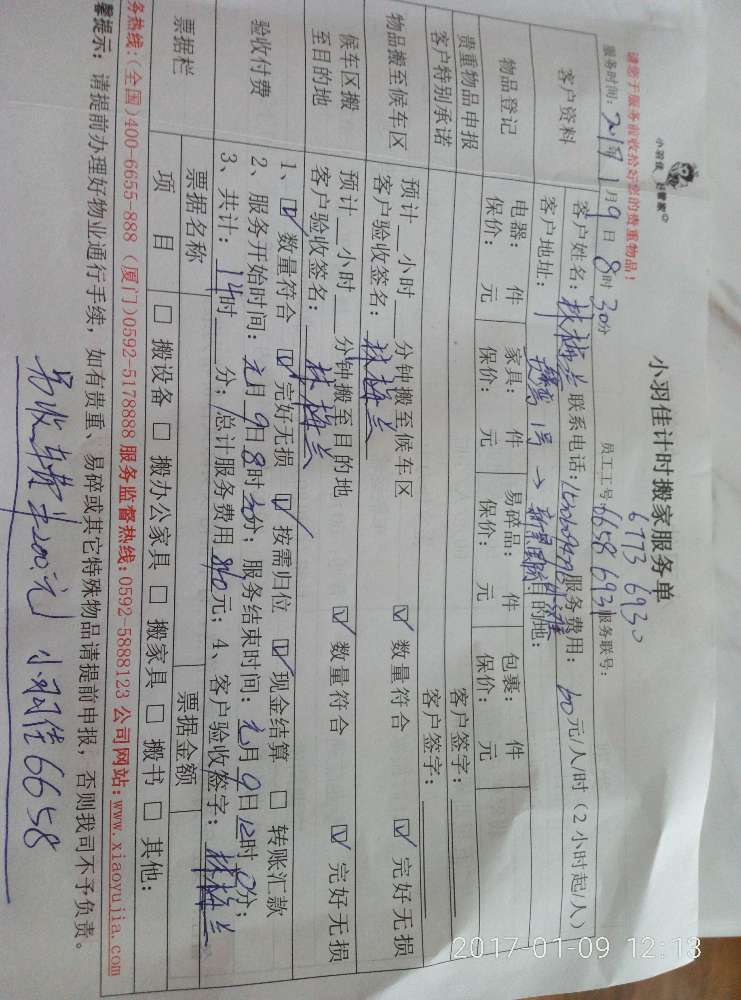 小羽佳计时搬家服务单
小羽佳 好管家
请您于服务前收拾好您的贵重物品!
6773 6930
服务时间: 1月9日8时30分 员工工号: 6658 693 服务联号:
客户资料 客户姓名: 林梅兰 联系电话: 服务费用: 60元/人/时(2小时起/人)
客户地址: 1号→ 目的地:
物品登记 电器: 件 家具: 件 易碎品: 件 包裹: 件
保价: 元 保价: 元 保价: 元 保价: 元
贵重物品申报 客户签字:
客户特别承诺 客户签字:
物品搬至候车区 预计__小时__分钟搬至候车区 ☑ 数量符合 ☑ 完好无损
客户验收签名: 林梅兰
候车区搬至目的地 预计__小时__分钟搬至目的地 ☑ 数量符合 ☑ 完好无损
客户验收签名: 林梅兰
验收付费 1、☑ 数量符合 ☑ 完好无损 ☑ 按需归位 ☑ 现金结算 □ 转账汇款
2、服务开始时间: 元月9日8时30分; 服务结束时间: 元月9日12时0分;
3、共计: 14时__分; 总计服务费用 840元; 4、客户验收签字: 林梅兰
票据栏 票据名称 票据金额
项目 □ 搬设备 □ 搬办公家具 □ 搬家具 □ 搬书 □ 其他:
务热线:(全国)400-6655-888 (厦门)0592-5178888 服务监督热线:0592-5888123 公司网站:www.xiaoyujia.com
馨提示: 请提前办理好物业通行手续, 如有贵重、易碎或其它特殊物品请提前申报, 否则我司不予负责。
另收车费¥200元 小羽佳6658
2017-01-09 12:13